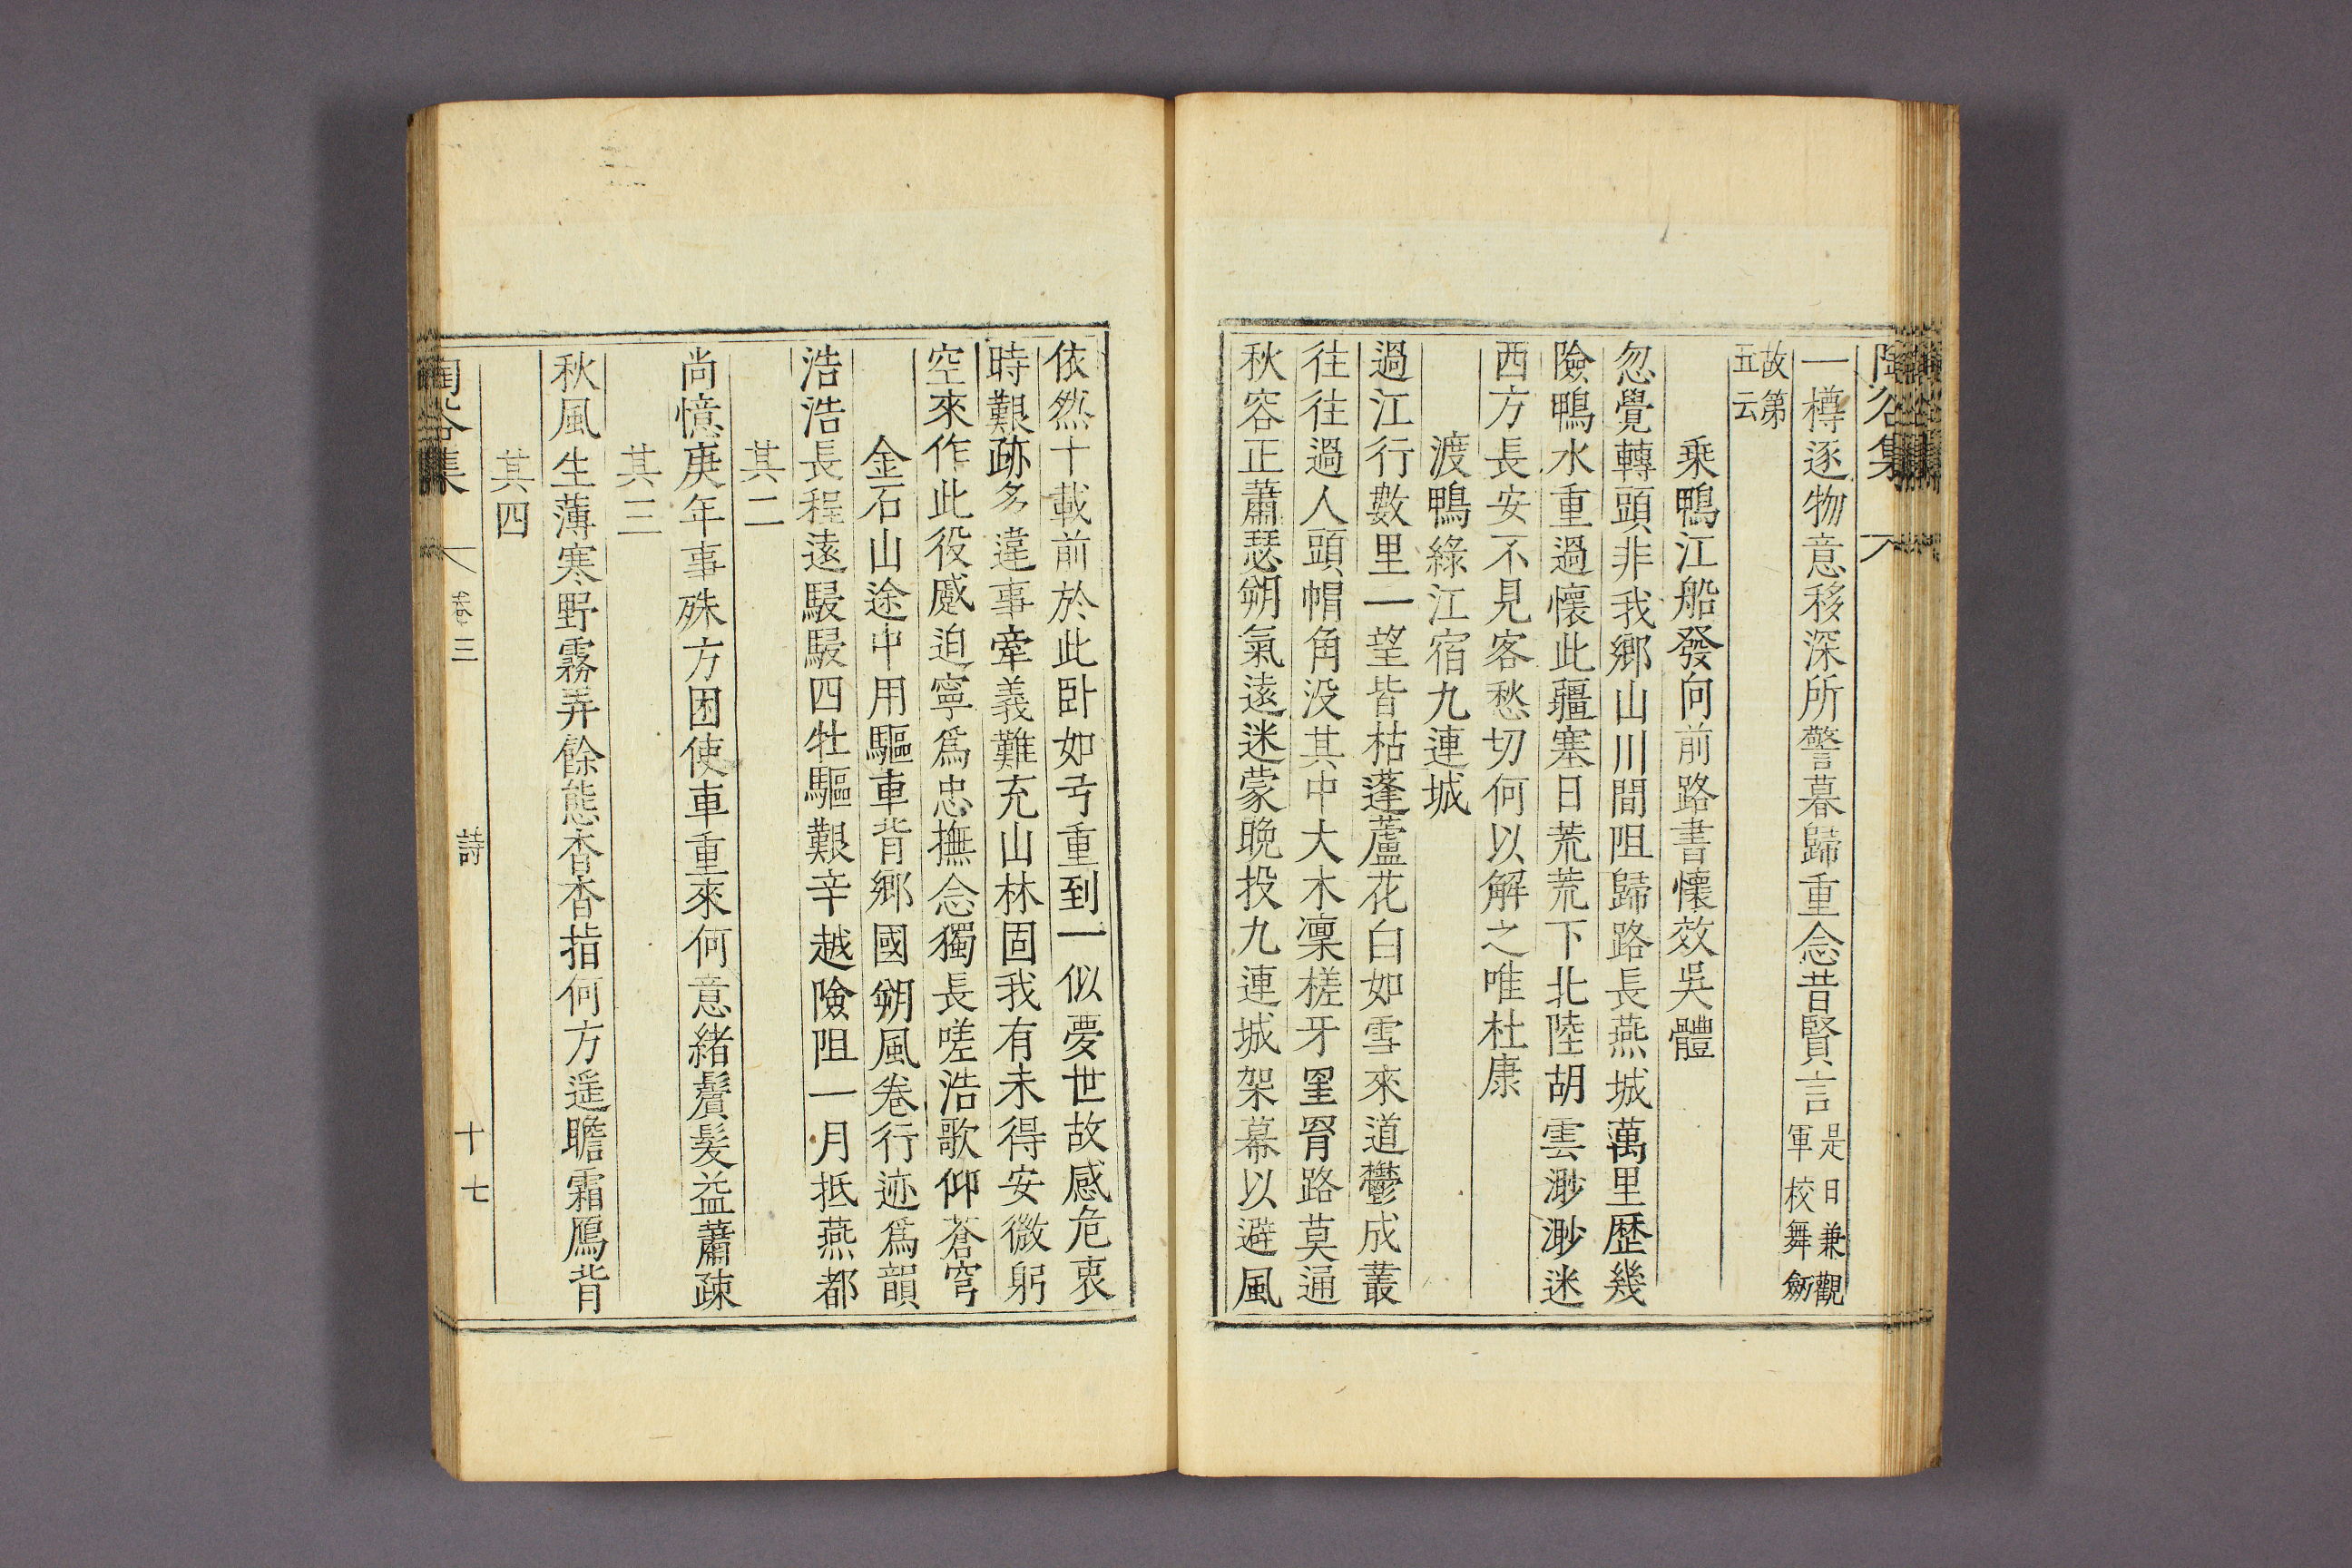 陶谷集
一樽逐物意移深所警暮歸重念昔賢言是日兼觀軍校舞劒
故第五云
乗鴨江船發向前路書懷效吳體
忽覺轉頭非我鄉山川間阻歸路長燕城萬里歷幾
險鴨水重過懷此疆塞日荒荒下北陸胡雲渺渺迷
西方長安不見客愁切何以解之唯杜康
渡鴨綠江宿九連城
過江行數里一望皆枯蓬蘆花白如雪來道鬱成叢
往往過人頭帽角没其中大木凜槎牙罣罥路莫通
秋容正蕭瑟朔氣遠迷蒙晚投九連城架幕以避風
依然十載前於此卧如弓重到一似夢世故感危衷
時艱跡多違事牽義難充山林固我有未得安微躬
空來作此役蹙迫寧爲忠撫念獨長嗟浩歌仰蒼穹
金石山途中用驅車背鄉國朔風卷行迹爲韻
浩浩長程遠駸駸四牡驅艱辛越險阻一月抵燕都
其二
尚憶庚年事殊方困使車重來何意緖鬢髮益蕭疎
其三
秋風生薄寒野霧弄餘態杳杳指何方遥瞻霜鴈背
其四
陶谷集 卷三 詩 十七